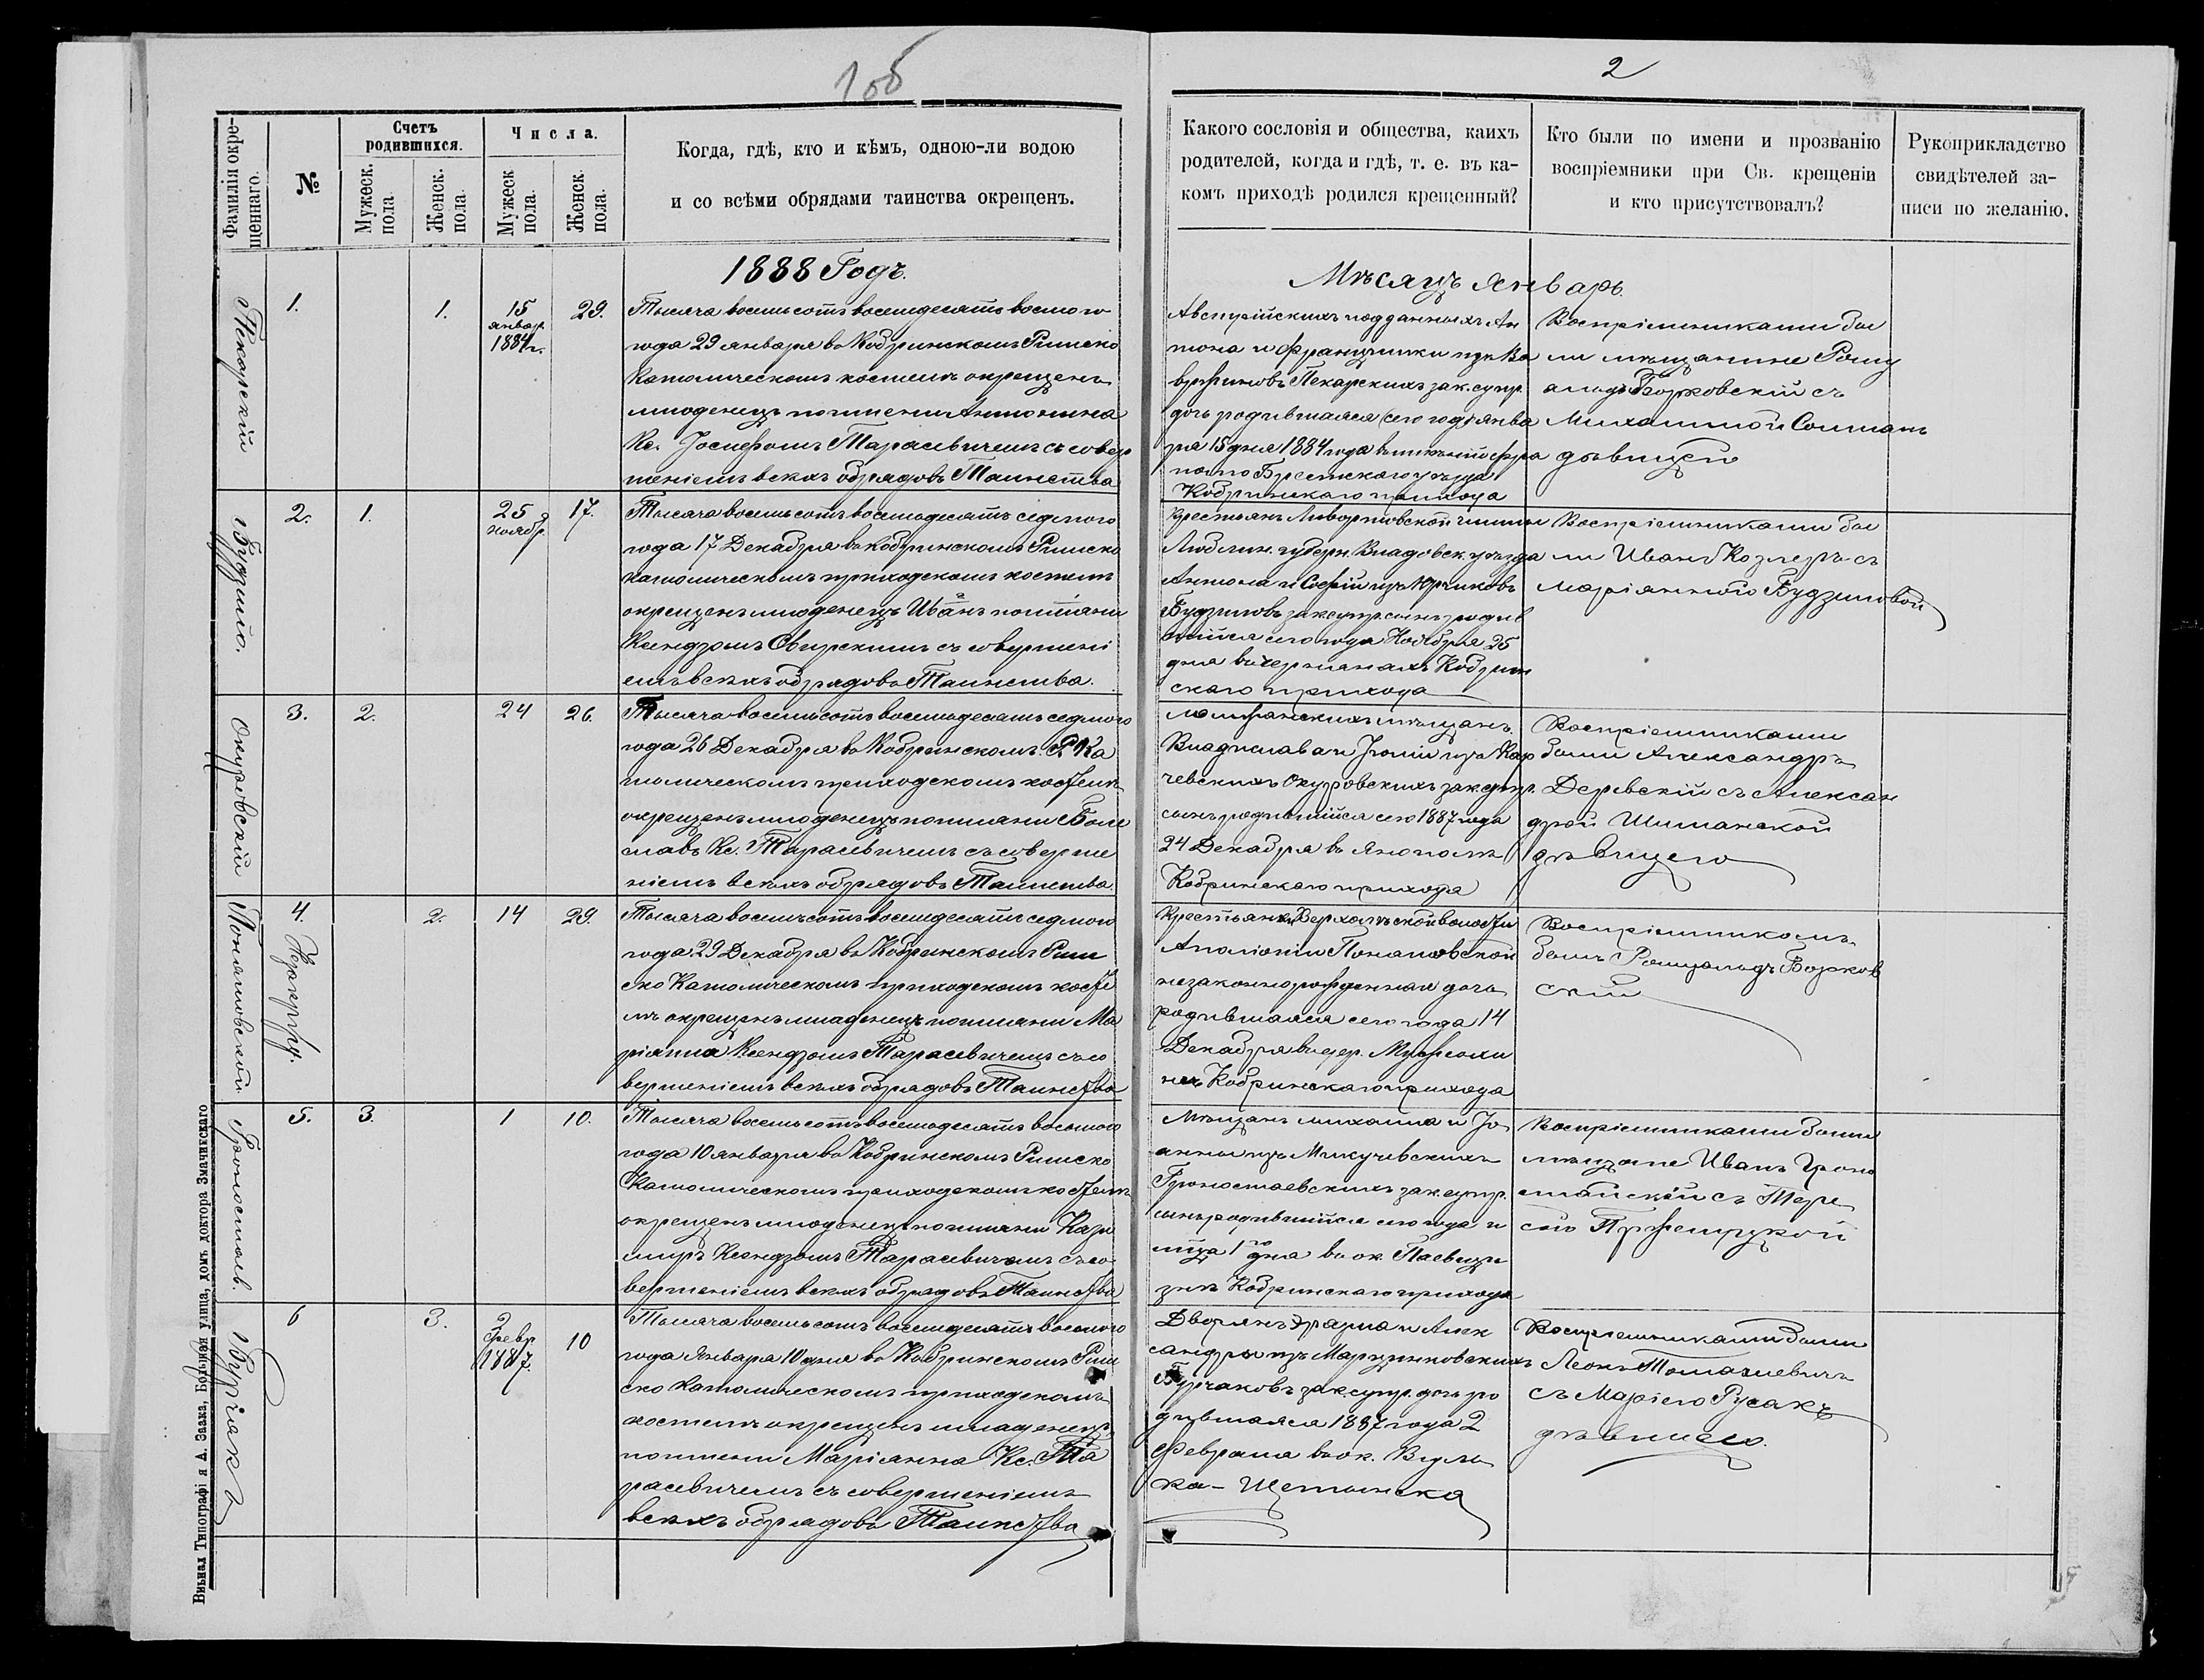 105
2
Фамилія окре-
щеннаго.
№
Счетъ
родившихся.
Мужеск.
пола.
Женск.
пола.
Числа.
Мужеск
пола.
Женск.
пола.
Когда, гдѣ, кто и кѣмъ, одною-ли водою
и со всѣми обрядами таинства окрещенъ.
Какого сословія и общества, каихъ
родителей, когда и гдѣ, т. е. въ ка-
комъ приходѣ родился крещенный?
Кто были по имени и прозванію
воспріемники при Св. крещеніи
и кто присутствовалъ?
Рукоприкладство
свидѣтелей за-
писи по желанію.
1888 Годъ.
Мѣсяцъ Январь.
Пекарскій
1.
1.
15
январ.
1884 г.
29.
Тысяча восемьсотъ восемдесятъ восмого
года 29 января въ Кобринскомъ Римско
Католическомъ костелѣ окрещенъ
младенецъ по имени Антонина
Кс. Іосифомъ Тарасевичемъ съ совер
шеніемъ всѣхъ обрядовъ Таинства
Австрійскихъ подданныхъ Ан
тона и Францишки изъ Ва
Пекарскихъ зак. супр.
дочь родившаяся сего года янва
ря 15 дня 1884 года
Брестскаго уѣзда
Кобринскаго прихода
Воспріемниками бы
ли мѣщанине Рому
альдъ Борковскій съ
Михалиной
дѣвицею
Будзило.
2.
1.
25
ноябр.
17.
Тысяча восемьсотъ восемьдесятъ седмого
года 17 Декабря въ Кобринскомъ Римско
католическомъ приходскомъ костелѣ
окрещенъ младенецъ Иванъ по имени
Ксендзомъ Свирскимъ съ совершені
емъ всѣхъ обрядовъ Таинства.
Крестьянъ гмины
Люблин. губерн. Владовск. уѣзда
Антона и Софіи изъ Юрчиковъ
Будзиловъ зак. супр. сынъ родив
шійся сего года Ноября 25
дня въ Черпянахъ Кобрин
скаго прихода
Воспріемниками бы
ли Иванъ Козлеръ съ
маріянною Будзиловой
Окуровскій
3.
2.
24
26.
Тысяча восемьсотъ восемьдесятъ седмого
года 26 Декабря въ Кобринскомъ Р. Ка
толическомъ приходскомъ костелѣ
окрещенъ младенецъ по имени Боле
славъ Кс. Тарасевичемъ съ соверше
ніемъ всѣхъ обрядовъ Таинства.
мѣщанъ
Владислава и Юліи изъ Кар
чевскихъ Окуровскихъ зак. супр.
сынъ родившійся сего 1887 года
24 Декабря въ Янополѣ
Кобринскаго прихода
Воспріемниками
были Александръ
Деревскій съ Алексан
дрой Шиманской
дѣвицею
Понятовской
4.
Незакрожд.
2.
14
29.
Тысяча восемьсотъ восемдесятъ седмого
года 29 Декабря въ Кобринскомъ Рим
ско Католическомъ приходскомъ косте
лѣ окрещенъ младенецъ по имени Ма
ріянна Ксендзомъ Тарасевичемъ съ со
вершеніемъ всѣхъ обрядовъ Таинства
Крестьянки волости
Аполоніи Понятовской
незаконнорожденная дочь
родившаяся сего года 14
Декабря въ дер.
Кобринскаго прихода
Воспріемникомъ
былъ Ромуальдъ Борков
скій
Гроностаевъ.
5.
3.
1
10.
Тысяча восемьсотъ восемдесятъ восьмого
года 10 января въ Кобринскомъ Римско
Католическомъ приходскомъ костелѣ
окрещенъ младенецъ по имени Кази
миръ Ксендзомъ Тарасевичемъ съ со
вершеніемъ всѣхъ обрядовъ Таинства
Мѣщанъ михаила и Іо
анны изъ Микучевскихъ
Гроностаевскихъ зак. супр.
сынъ родившійся сего года и
мца 1го дня въ ок.
Кобринскаго прихода
Воспріемниками были
мѣщане Иванъ Гроно
стайскій съ Тере
сію
Бурчакъ
6
3.
2
Февр
1887.
10
Тысяча восемьсотъ восемдесятъ восьмого
года Января 10 дня въ Кобринскомъ Рим
ско католическомъ приходскомъ
костелѣ окрещенъ младенецъ
по имени Маріанна Кс. Та
расевичемъ съ совершеніемъ
всѣхъ обрядовъ Таинства
Дворянъ и Алек
сандры изъ Марцинковскихъ
Бурчаковъ зак. супр. дочь ро
дившаяся 1887 года 2
Февраля въ ок. Вуль
ка-Щетынска
Воспріемниками были
Леонъ Томашевичъ
съ Маріею Русакъ
дѣвицею.
Вильна Типографія А. Зака, Большая улица, домъ доктора Змачинскаго